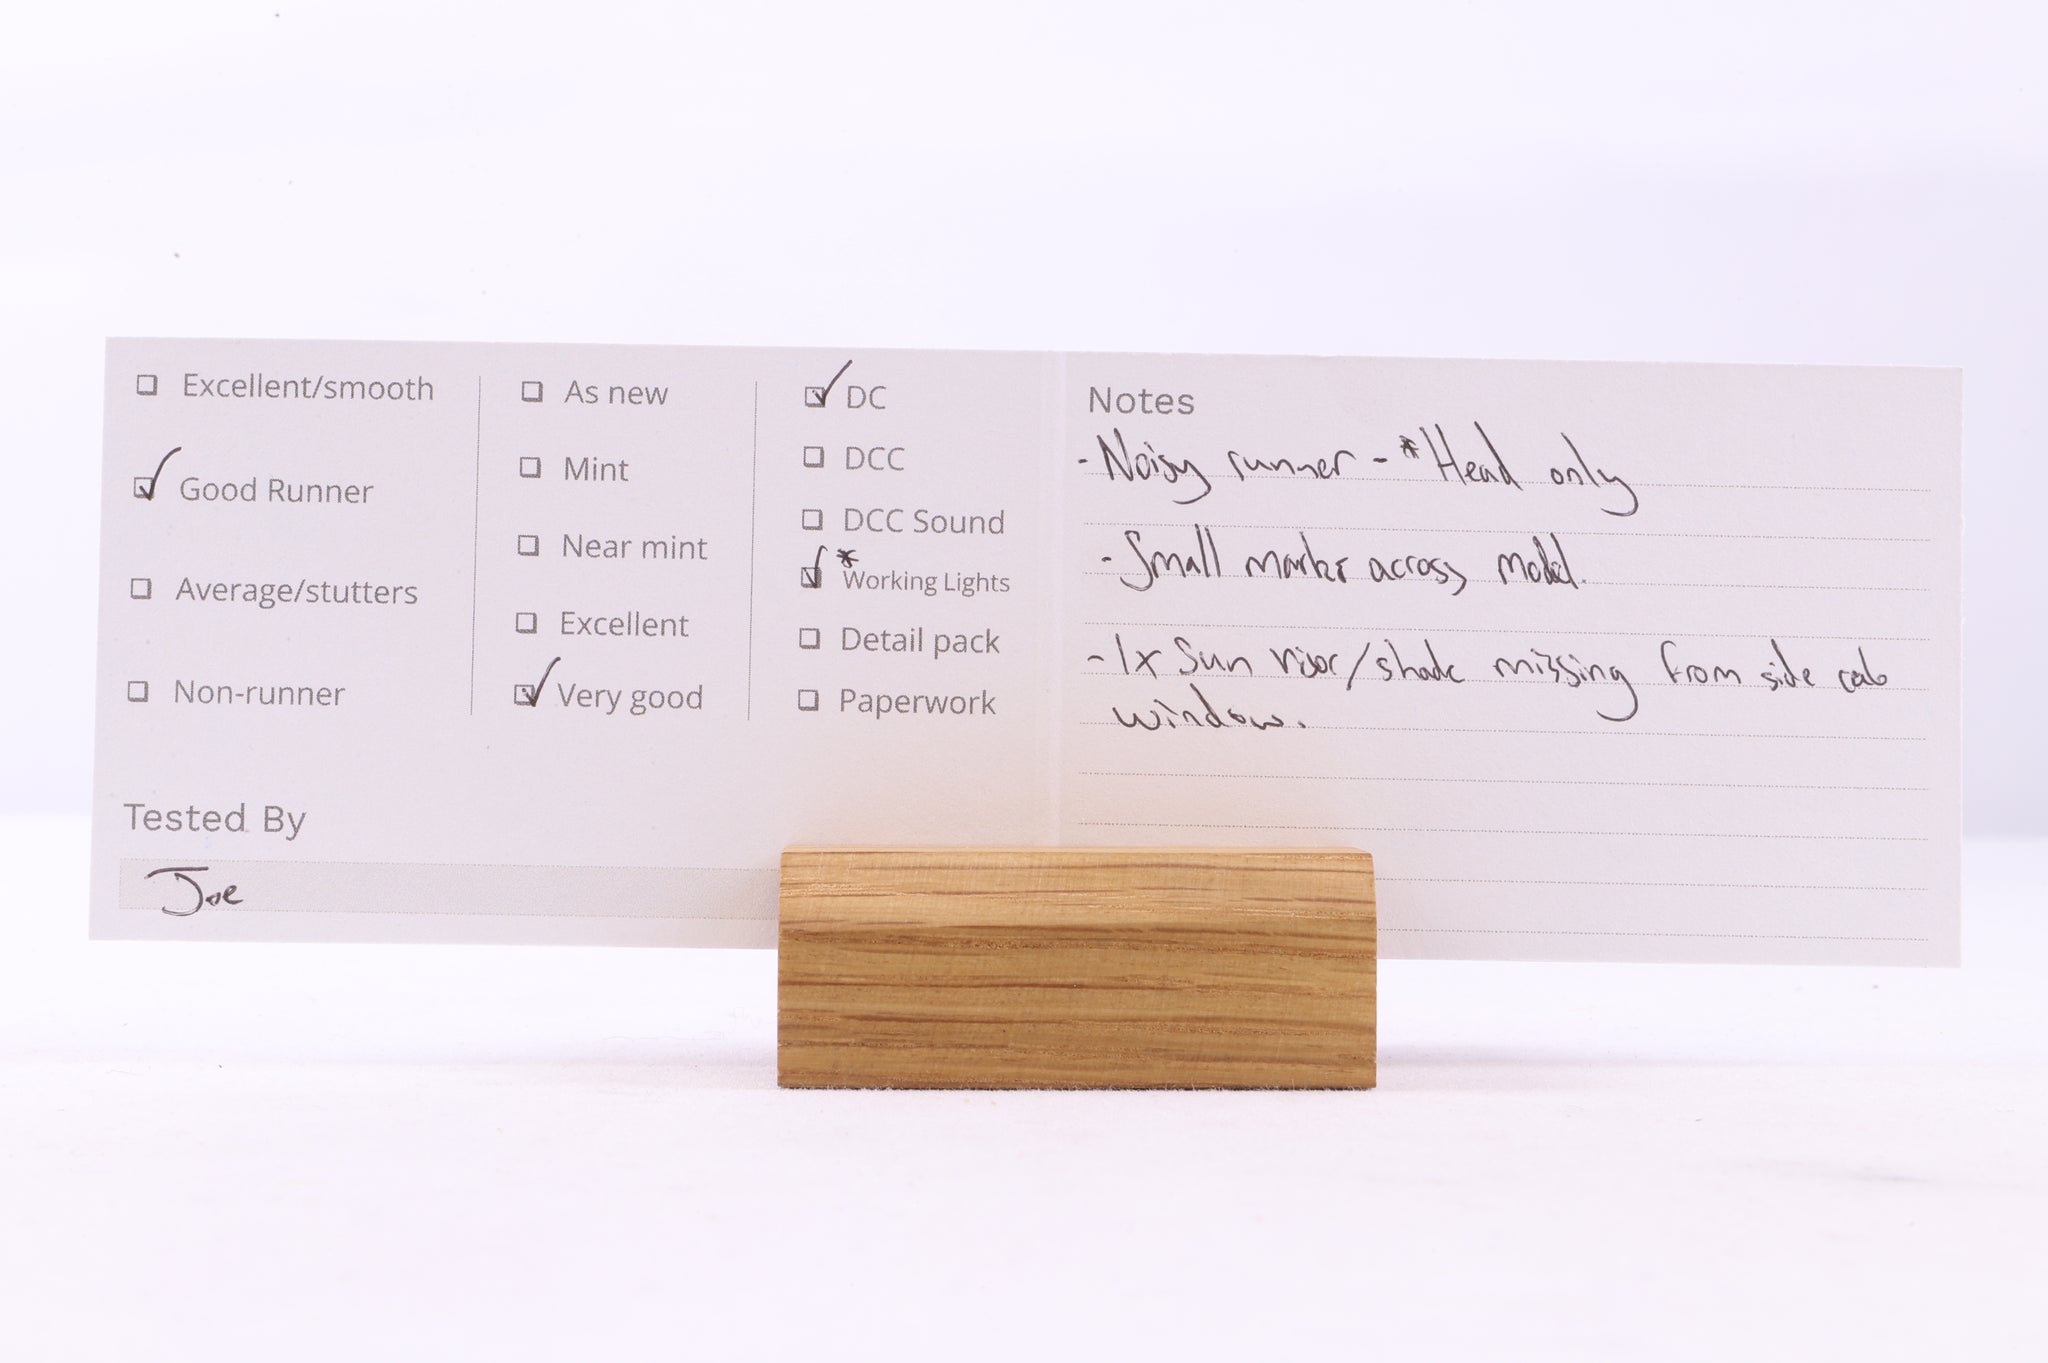 Excellent/smooth
Good Runner
Average/stutters
Non-runner
As new
Mint
Near mint
Excellent
Very good
DC
DCC
DCC Sound
*Working Lights
Detail pack
Paperwork
Tested By
Joe
Notes
- Noisy runner - *Head only
- Small marks across model.
- 1x Sun visor/shade missing from side cab
window.